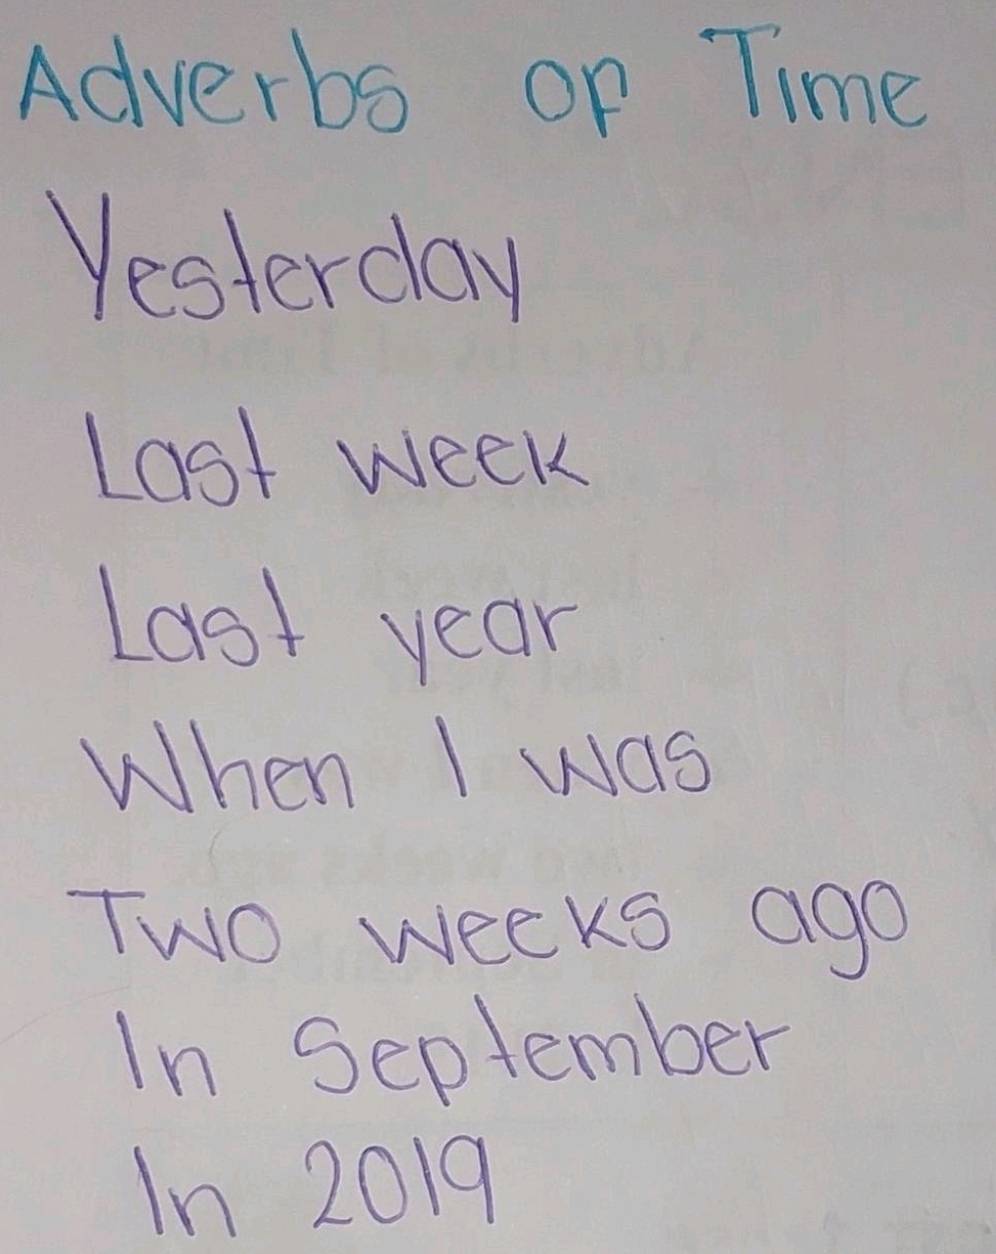 Adverbs of Time
Yesterday
Last week
Last year
When I was
Two weeks ago
In September
In 2019